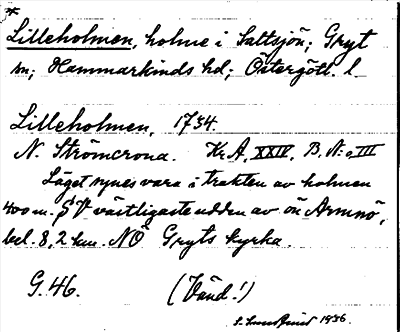 *
Lilleholmen, holme i Saltsjön; Gryt
sn; Hammarkinds hd; Östergötl. l.
Lilleholmen, 1734.
N. Strömcrona. Kr. A, XXIV, B. N:o III
Läget synes vara i trakten av holmen
400 m. SV västligaste udden av ön Armnö,
bel. 8,2 km. NÖ Gryts kyrka.
G. 46. (Vänd!)
1936